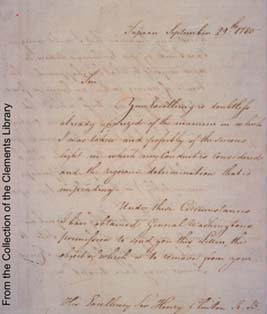 From the Collection of the Clements Library
Tapaan September 29th 1780
Sir
Your Excellency is doubtless
already apprized of the manner in which
I was taken and possibly of the serious
light in which my Conduct is considered
and the rigorous determination that is
impending.
Under these Circumstances
I have obtained General Washington's
permission to send you this Letter the
object of which is to remove from your
His Excellency Sir Henry Clinton K. B.